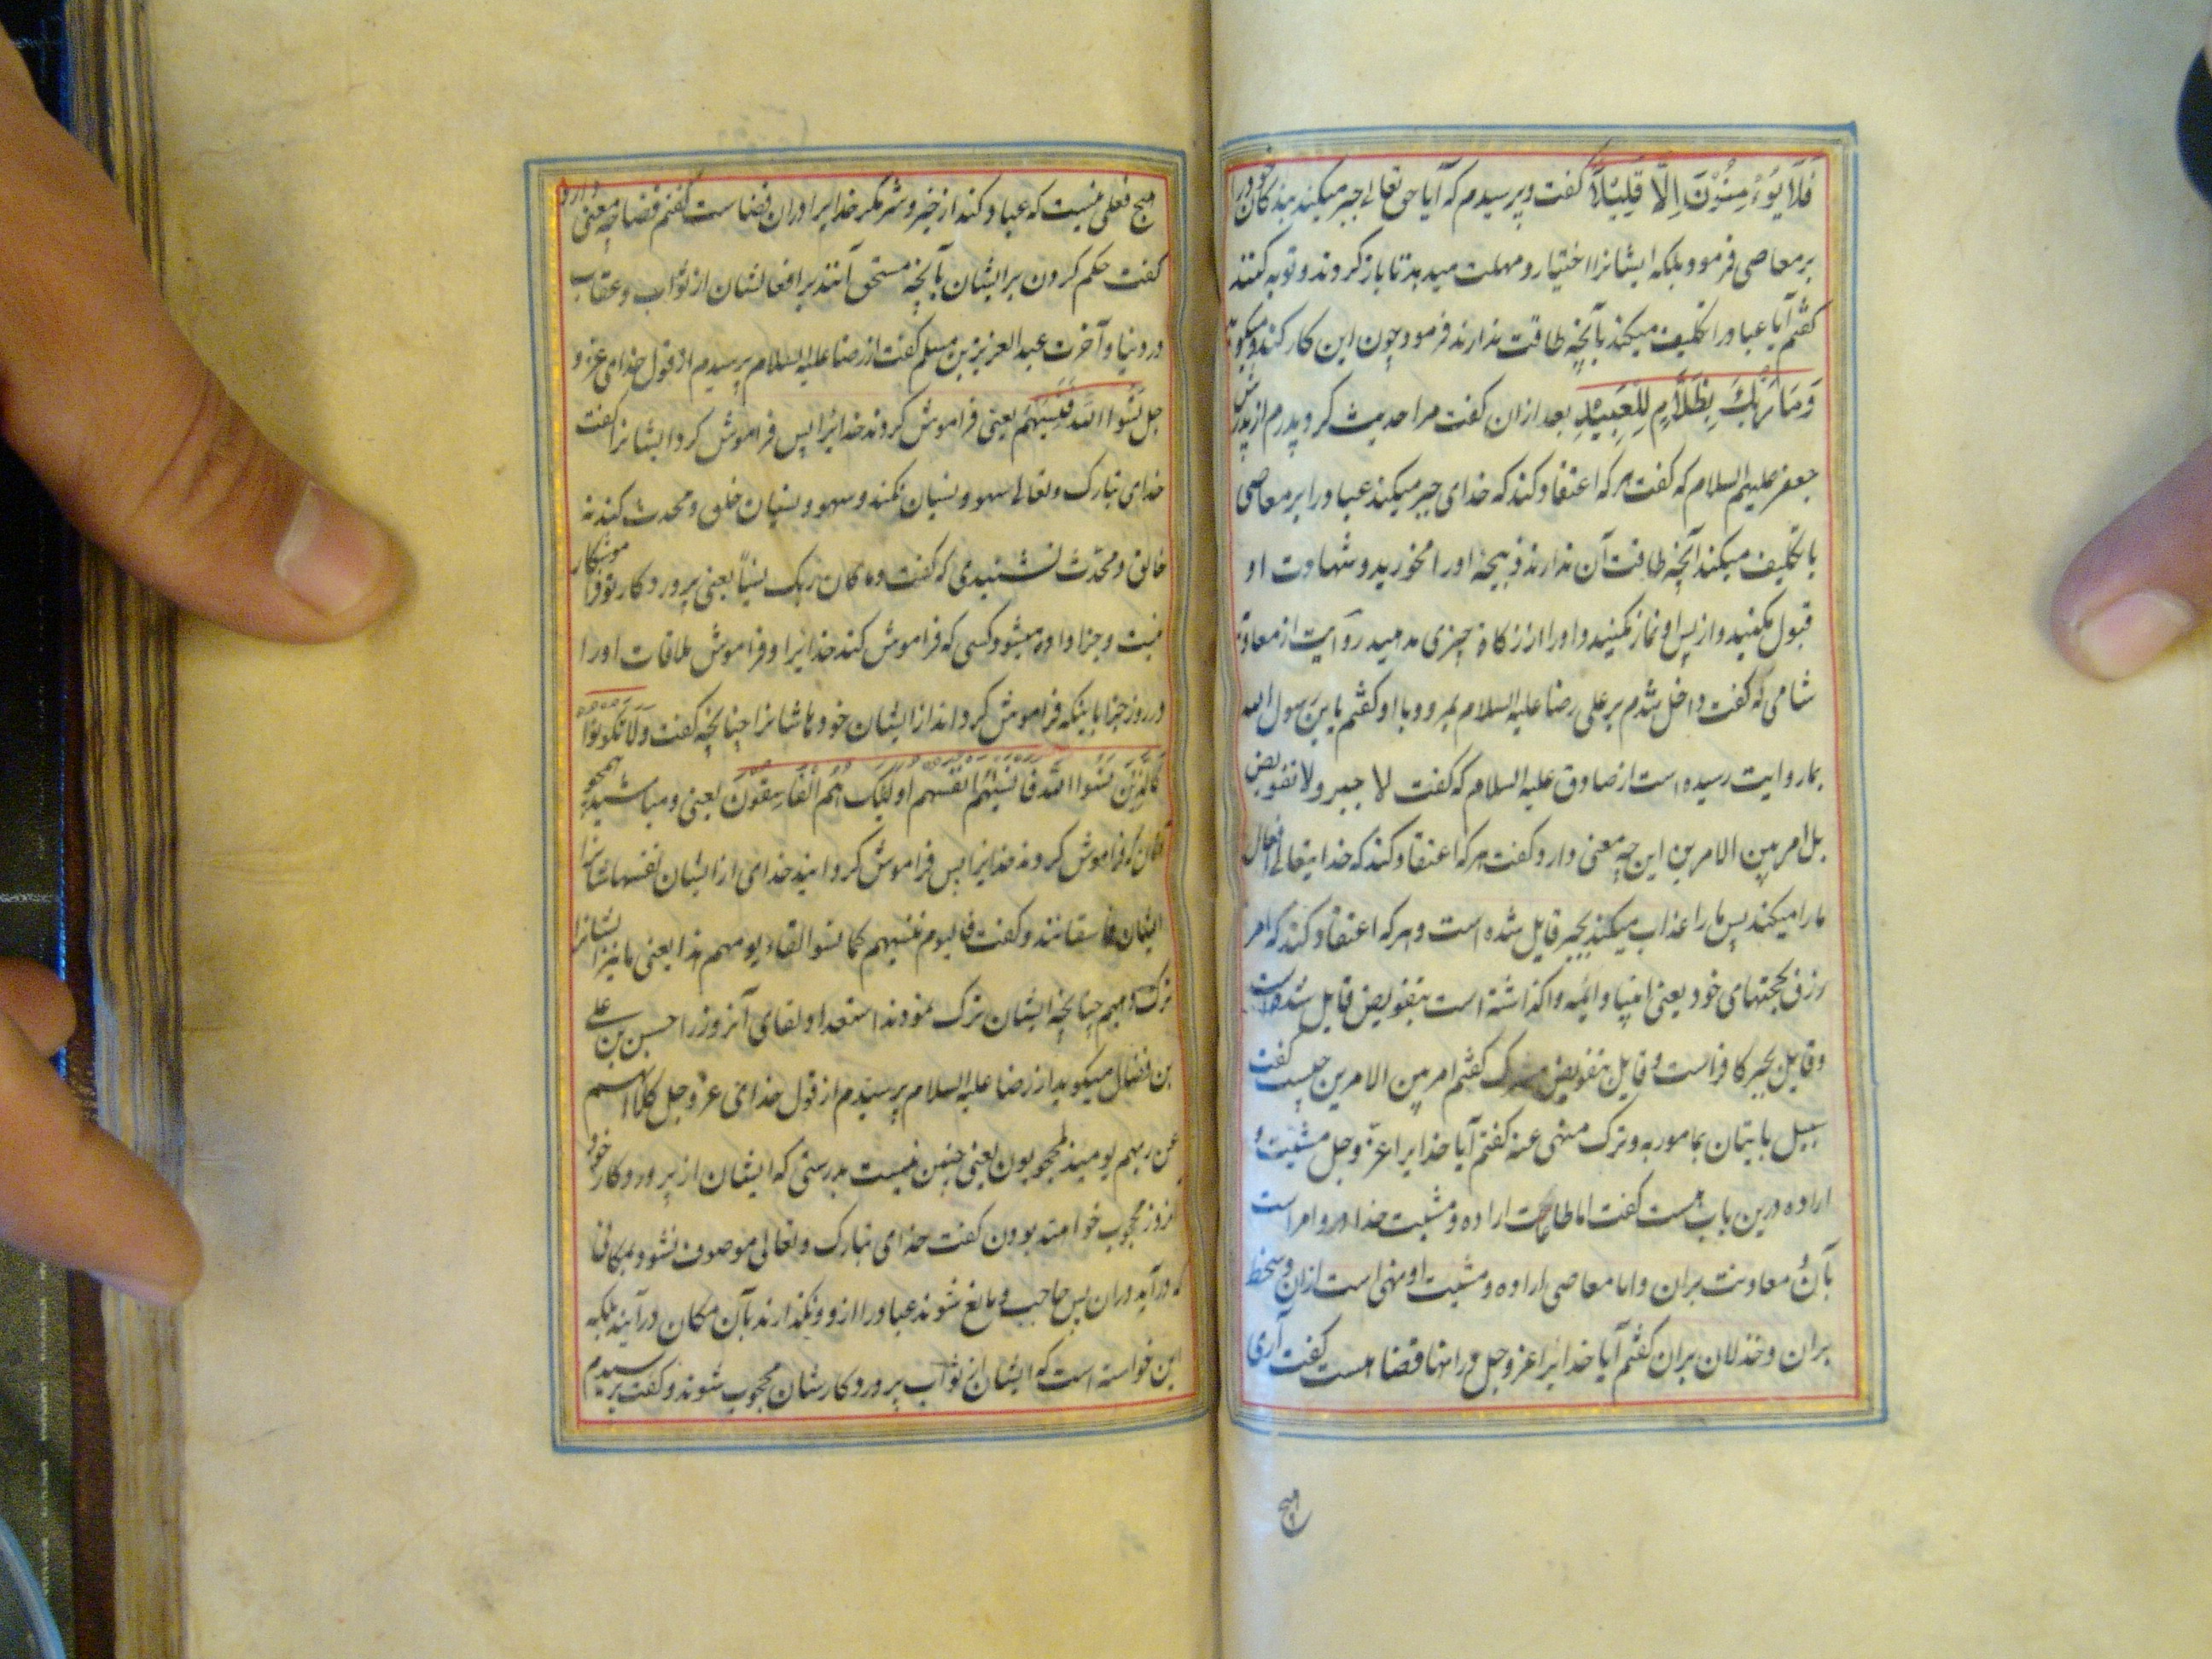 فَلَا یُؤْمِنُوْنَ اِلَّا قَلِیْلَاً گفت و پرسیدم که آیا حق تعالے جبر میکند بندکان خود را
بر معاصی فرمود بلکه ایشانرا اختیار و مهلت میدهد تا باز کردند و توبه کنند
گفتم آیا عباد را تکلیف میکند بآنچه طاقت ندارند فرمود چون این کار کند و میکوید
وَمَا رَبُّكَ بِظَلَّامٍ لِلْعَبِیْدِ بعد ازان گفت مرا حدیث کرد پدرم از پدرش
جعفر علیهم السلام که گفت هر که اعتقاد کند که خدای جبر میکند عباد را بر معاصی
یا تکلیف میکند آنچه طاقت آن ندارند ذبیحهٔ او را مخورید و شهادت او
قبول مکنید و از پس او نماز مکنید و او را از زکاة چیزی مدهید روآیت از معاویهٔ
شامی که گفت داخل شدم بر علی رضا علیه السلام بمرو و با او کفتم یابن رسول الله
بما روایت رسیده است از صادق علیه السلام که گفت لا جبر ولا تفویض
بل امر بین الامرین این چه معنی دارد کفت هر که اعتقاد کند که خدایتعالے افعال
ما را میکند پس ما را عذاب میکند بجبر قایل شده است و هر که اعتقاد کند که امر
رزق بحجتهای خود یعنی انبیا و ائمه واکذاشته است بتفویض قایل شده است
و قایل بجبر کافر است و قایل بتفویض مشرک کفتم امر بین الامرین چیست کفت
سبیل باتیان بمامور به و ترک منهی عنه کفتم آیا خدایرا عزّ و جل مشیت و
اراده درین باب هست کفت اما طاعات اراده و مشیت خدا درو امر است
بآن و معاونت بران و اما معاصی اراده و مشیت او نهی است ازان و سخط
بران و خذلان بران کفتم آیا خدایرا عز و جل در انها قضا هست کفت آری
هیچ
هیچ فعلی نیست که عباد کند از خیر و شر مکر خدایرا دران قضاست کفتم قضا چه معنی دارد
کفت حکم کردن بر ایشان بآنچه مستحق آنند بر افعالشان از ثواب و عقاب
در دنیا و آخرت عبد العزیز بن مسلم کفت از رضا علیه السلام پرسیدم از قول خدای عز و
جل نَسُوا اللهَ فَنَسِیَهُمْ یعنی فراموش کردند خدایرا پس فراموش کرد ایشانرا کفت
خدای تبارک و تعالی سهو و نسیان نکند و سهو و نسیان خلق و محدث کند نه
خالق و محدِث نشنیدی که کفت وما کان ربک نسیّاً یعنی پروردکار تو فراموشکار
نیست و جزا داده میشود کسی که فراموش کند خدایرا و فراموش ملاقات او را
در روز جزا باینکه فراموش کرداند از ایشان خودهاشانرا چنانچه کفت وَلَا تَکُونُوا
کَالَّذِیْنَ نَسُوا اللهَ فَاَنْسٰیهُمْ اَنْفُسَهُم اُولٰئِکَ هُمُ الْفَاسِقُوْنَ یعنی و مباشید همچو
آنان که فراموش کردند خدایرا پس فراموش کردانید خدای از ایشان نفسهاشانرا
ایشان فاسقانند و کفت فالیوم ننسیهم کما نسوا لقاء یومهم هذا یعنی ما نیز ایشانرا
ترک دهیم چنانچه ایشان ترک نمودند استعداد لقای آنروز را حسن بن علی
بن فضال میکوید از رضا علیه السلام پرسیدم از قول خدای عز و جل کلا انهم
عن ربهم یومیذ لمحجوبون یعنی چنین نیست بدرستی که ایشان از پروردکار خود
آنروز محجوب خواهند بودن کفت خدای تبارک و تعالی موصوف نشود بمکانی
که درآید دران پس حاجب و مانع شوند عباد را ازو و نکذارند بآن مکان درآیند بلکه
این خواسته است که ایشان از ثواب پروردکارشان محجوب شوند و کفت پرسیدم